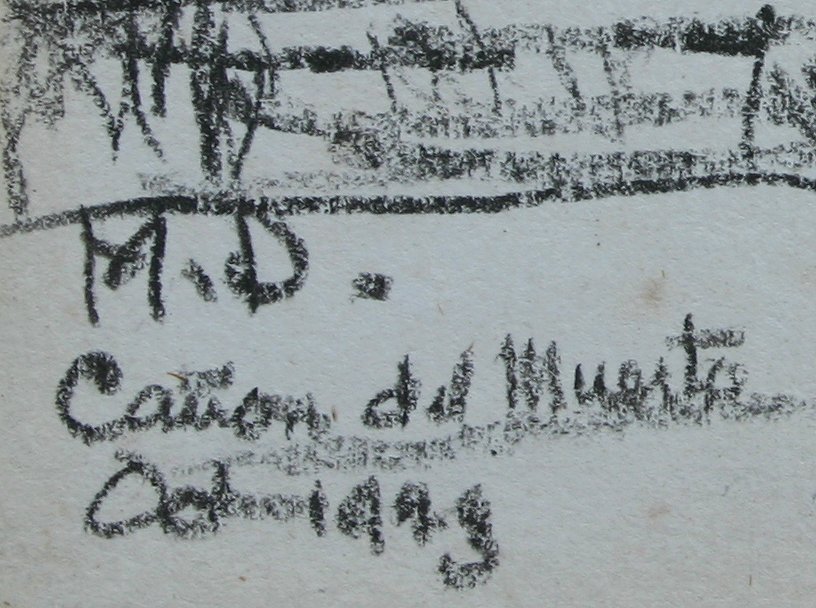 M.D.
Cañon del Muerto
Oct-1923